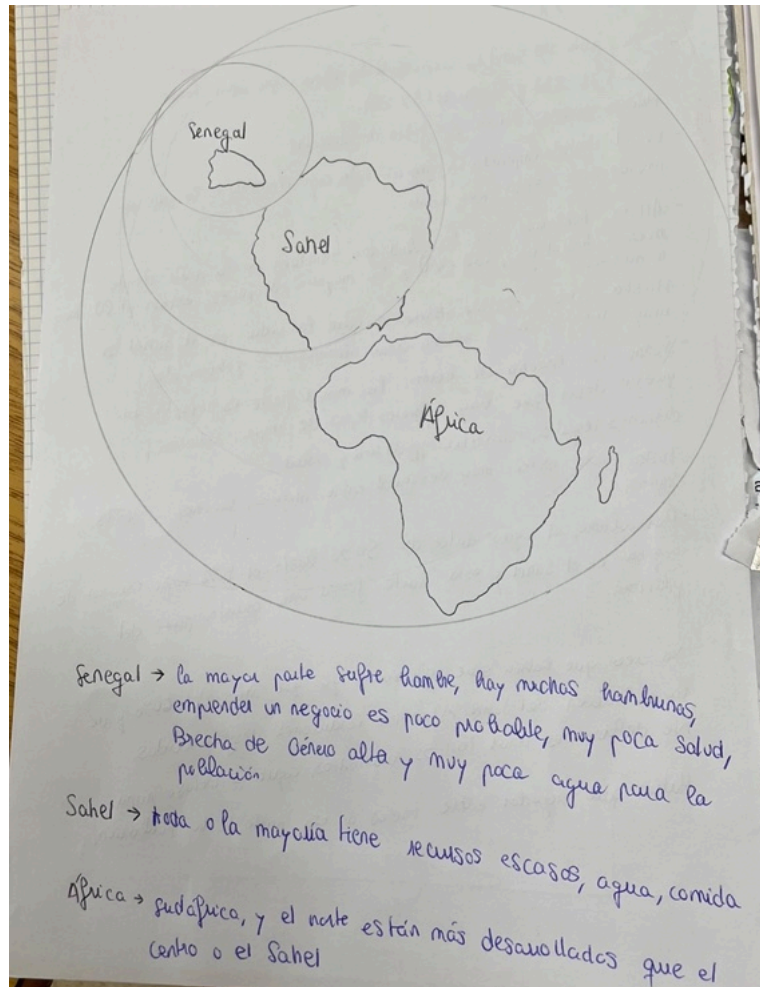 Senegal
Sahel
África
Senegal → la mayor parte sufre hambre, hay muchas hambrunas,
emprender un negocio es poco probable, muy poca salud,
Brecha de Género alta y muy poca agua para la
población
Sahel → toda o la mayoría tiene recursos escasos, agua, comida
África → Sudáfrica, y el norte están más desarrollados que el
centro o el Sahel